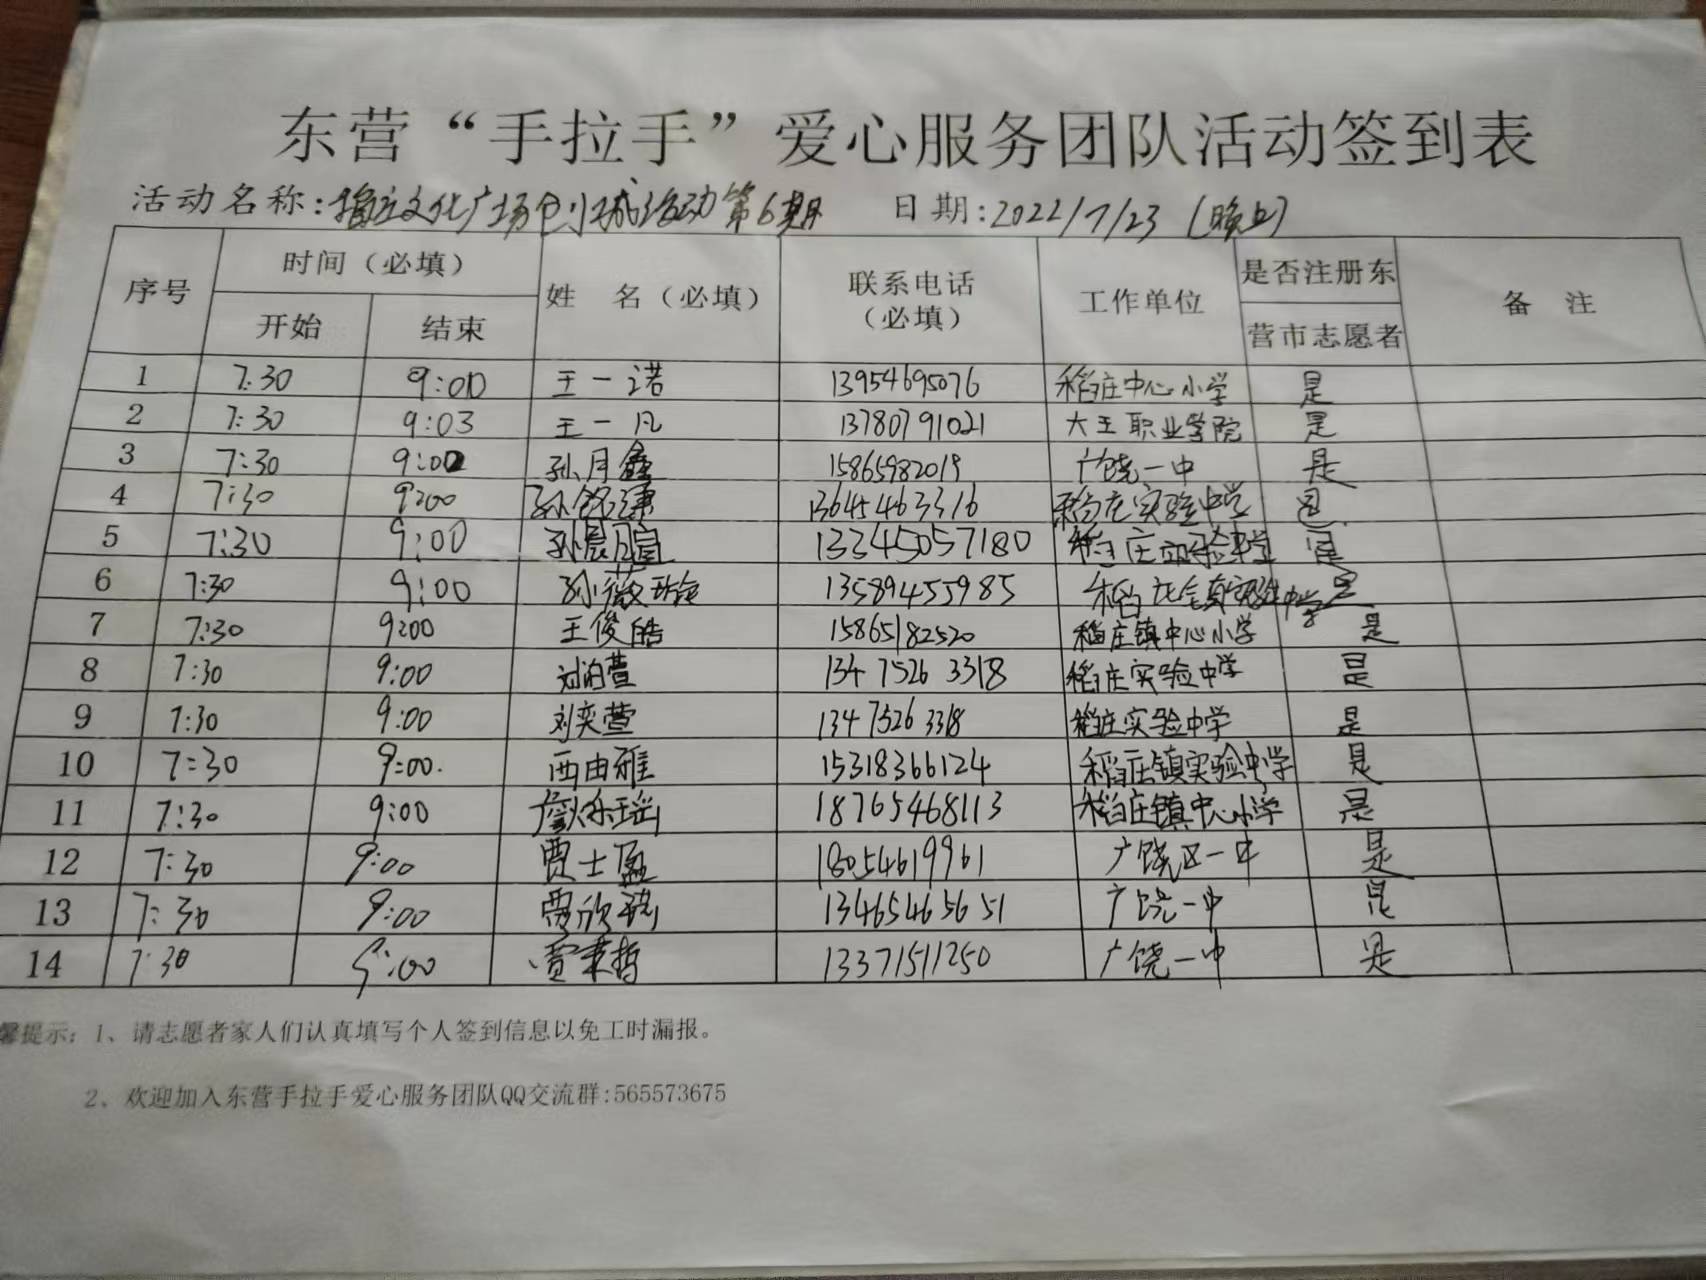 东营“手拉手”爱心服务团队活动签到表
活动名称：稻庄文化广场创城活动第6期 日期：2022/7/23（晚上）
序号 时间（必填） 姓 名（必填） 联系电话（必填） 工作单位 是否注册东营市志愿者 备 注
开始 结束
1 7:30 9:00 王一诺 13954695076 稻庄中心小学 是
2 7:30 9:03 王一凡 13780791021 大王职业学院 是
3 7:30 9:00 孙月鑫 15865982019 广饶一中 是
4 7:30 9:00 孙 13645463316 稻庄实验中学 是
5 7:30 9:00 孙晨瑄 13345057180 稻庄实验中学 是
6 7:30 9:00 孙薇 13589455985 稻庄镇实验中学 是
7 7:30 9:00 王俊皓 15865182520 稻庄镇中心小学 是
8 7:30 9:00 刘泊萱 134 7526 3318 稻庄实验中学 是
9 7:30 9:00 刘奕萱 134 7526 3318 稻庄实验中学 是
10 7:30 9:00. 西由雅 15318366124 稻庄镇实验中学 是
11 7:30 9:00 詹乐瑶 18765468113 稻庄镇中心小学 是
12 7:30 9:00 贾士盈 18054619961 广饶一中 是
13 7:30 9:00 贾欣 13465465651 广饶一中 是
14 7:30 9:00 贾秉哲 13371511250 广饶一中 是
馨提示：1、请志愿者家人们认真填写个人签到信息以免工时漏报。
2、欢迎加入东营手拉手爱心服务团队QQ交流群：565573675